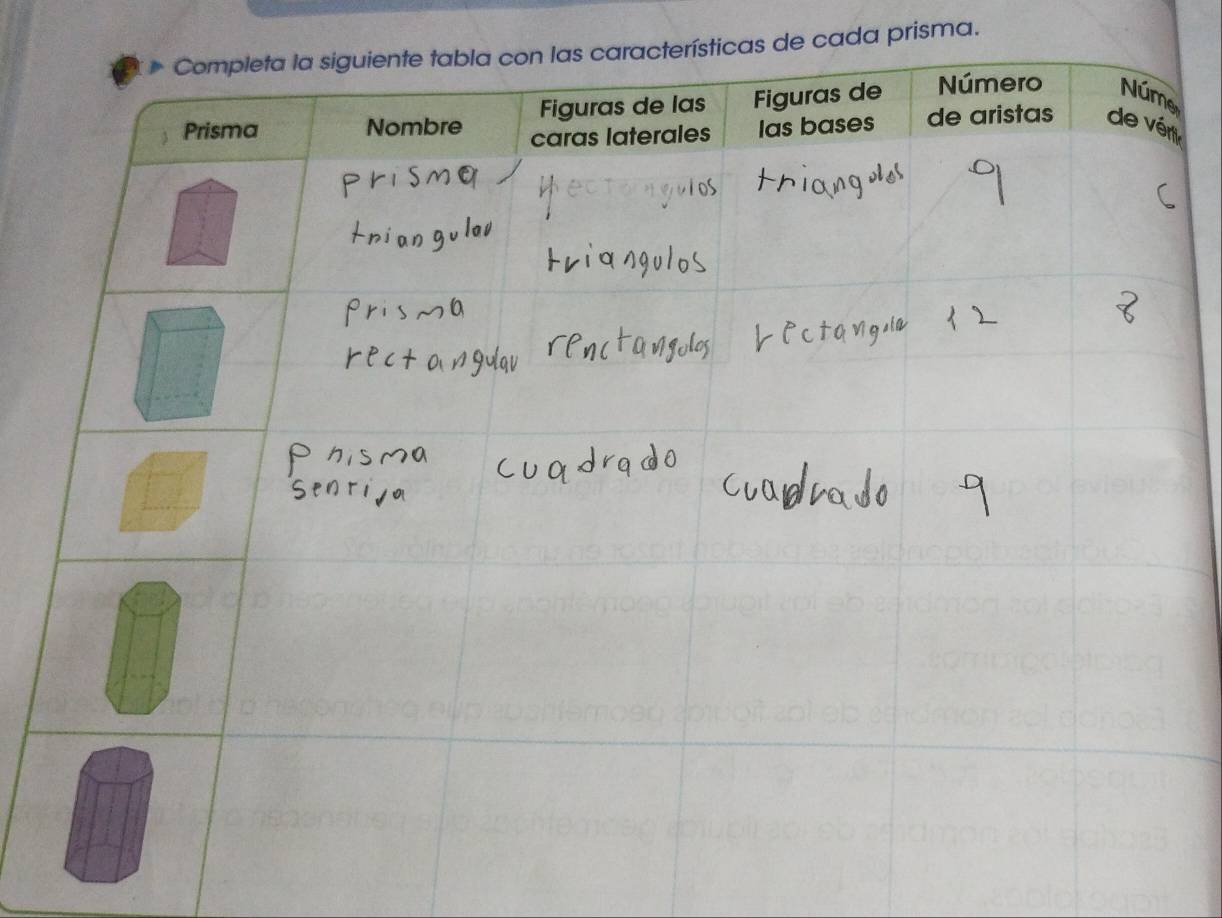 Completa la siguiente tabla con las características de cada prisma.
Prisma Nombre Figuras de las caras laterales Figuras de las bases Número de aristas Número de
prisma triangular rectangulos triangulos triangulos 9 6
prisma rectangular renctangulos rectangula 12 8
prisma cuadrado cuadrado 9